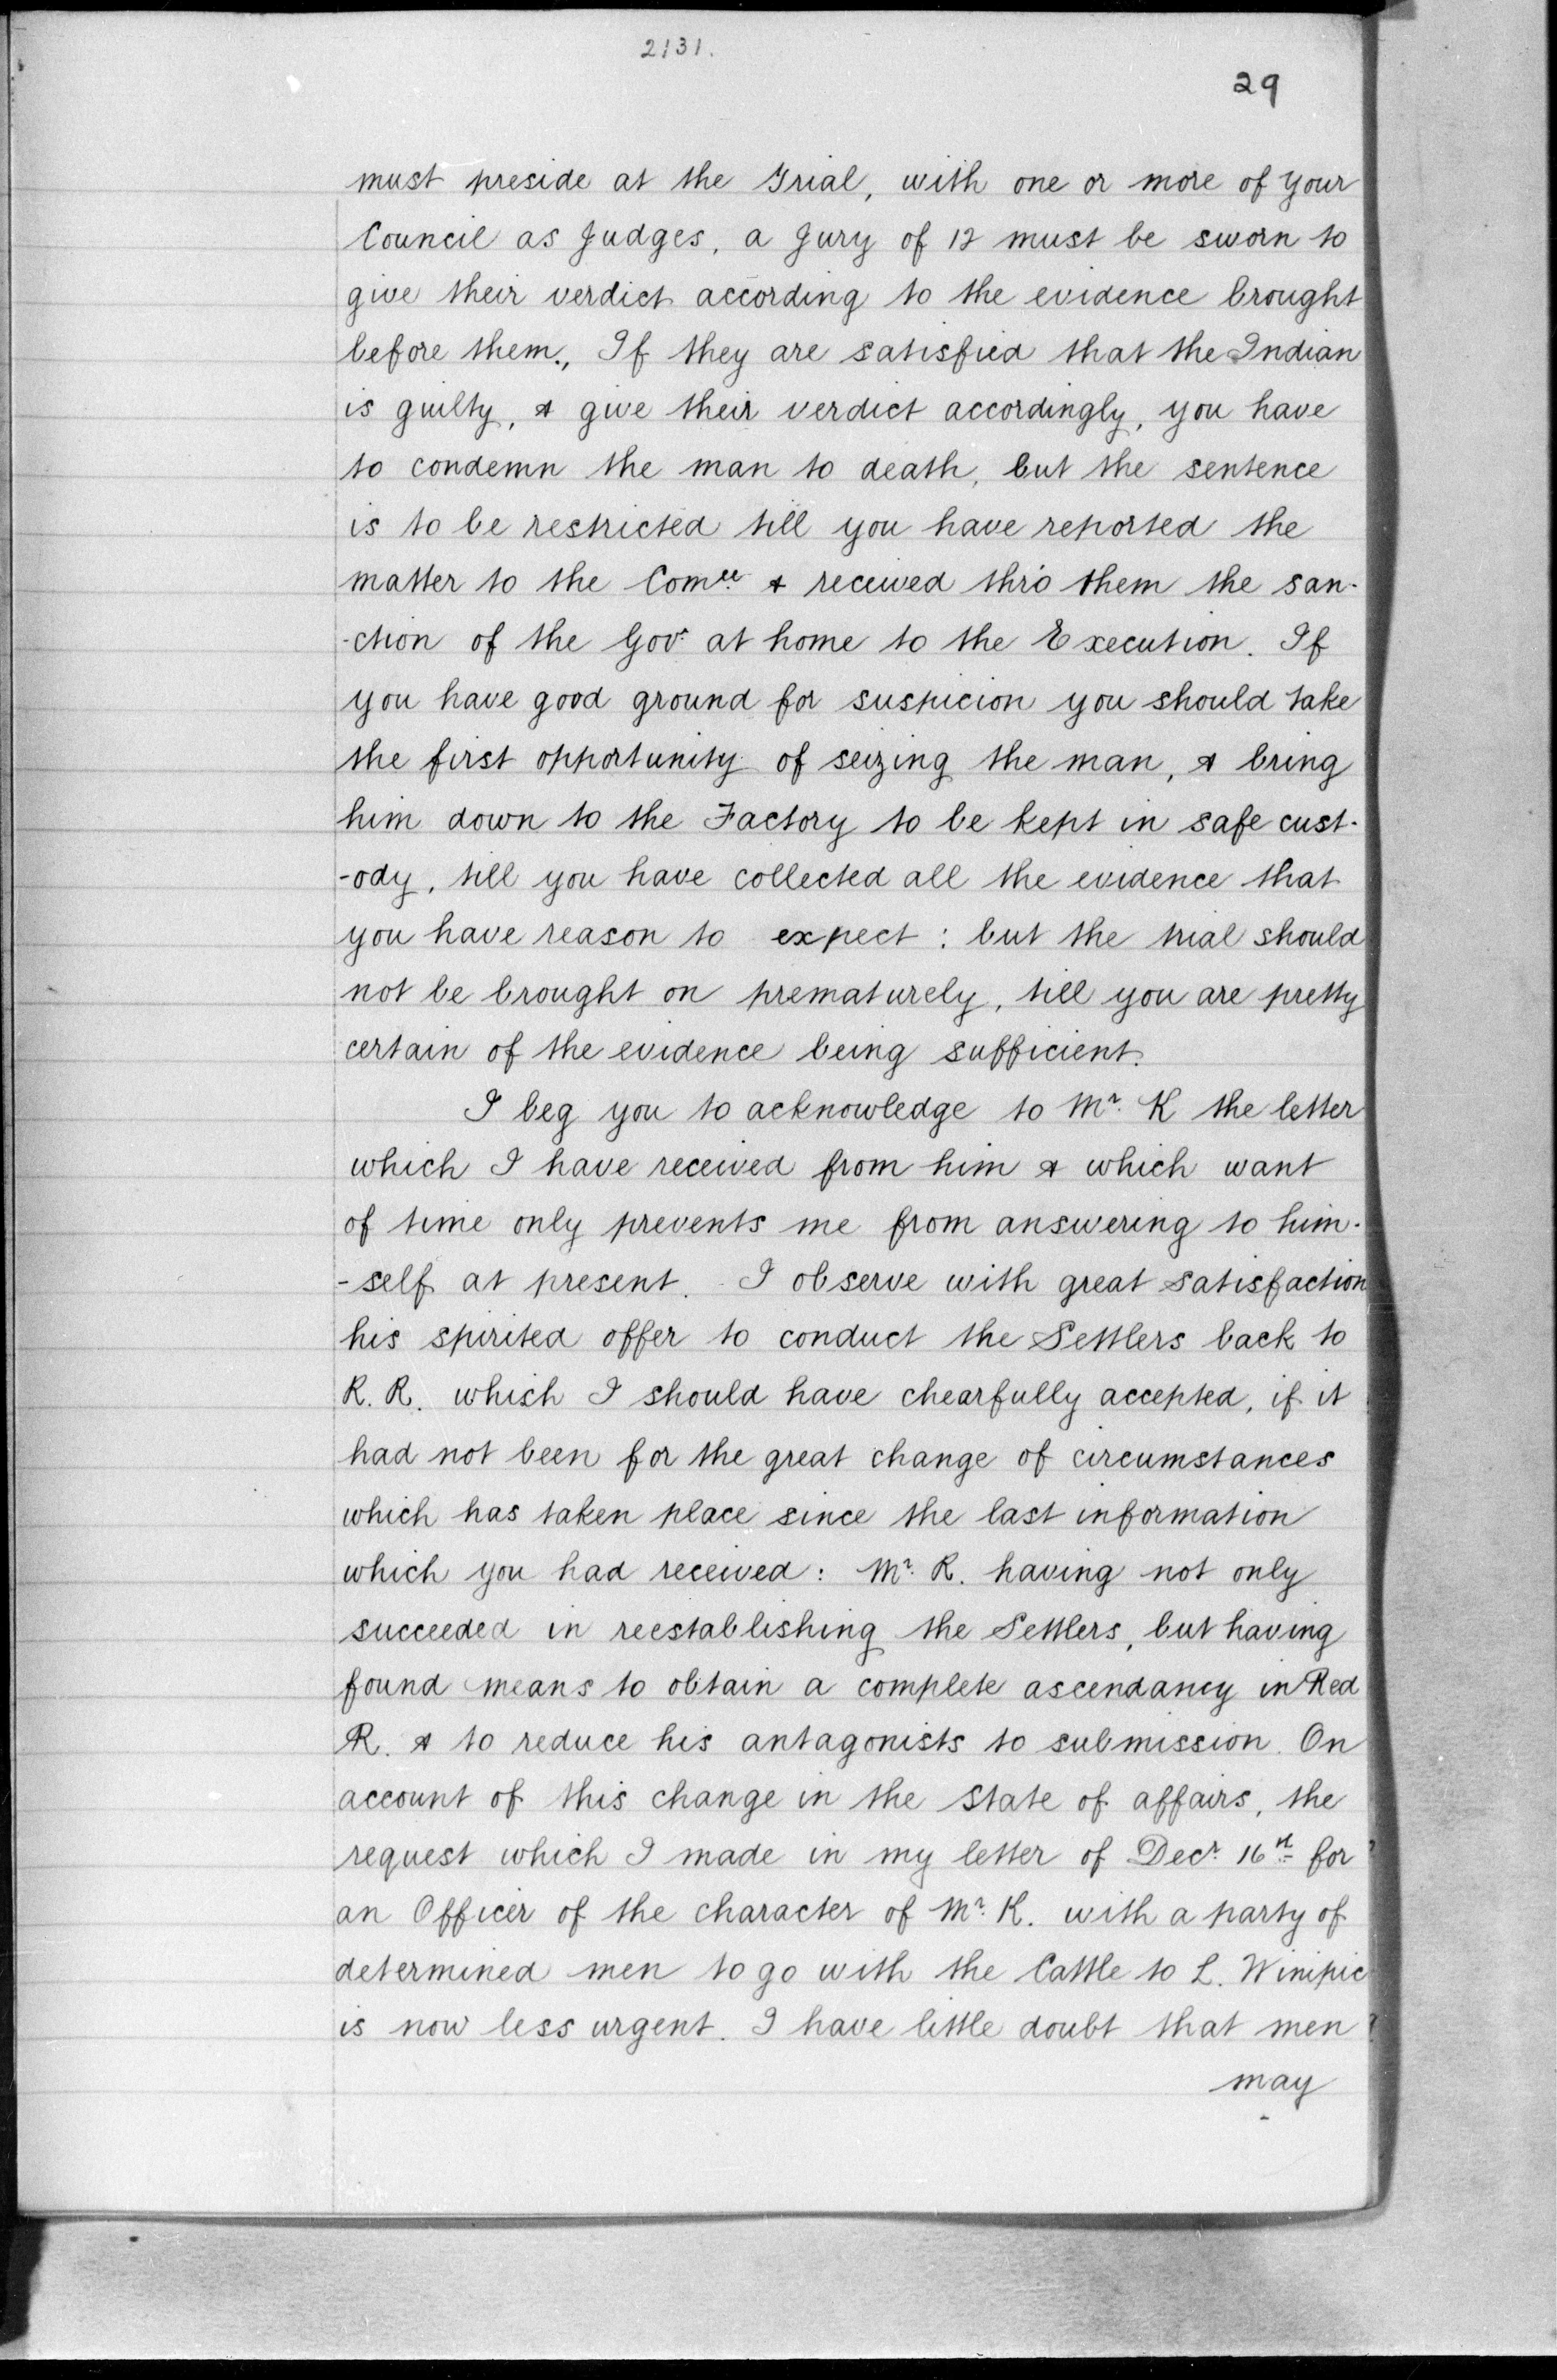 2131.
29
must preside at the Trial, with one or more of your
Council as Judges, a Jury of 12 must be sworn to
give their verdict according to the evidence brought
before them., If they are satisfied that the Indian
is guilty, & give their verdict accordingly, you have
to condemn the man to death, but the sentence
is to be restricted till you have reported the
matter to the Comee & received thro' them the san-
-ction of the Govt at home to the Execution. If
you have good ground for suspicion you should take
the first opportunity of seizing the man, & bring
him down to the Factory to be kept in safe cust-
-ody, till you have collected all the evidence that
you have reason to expect : but the trial should
not be brought on prematurely, till you are pretty
certain of the evidence being sufficient.
I beg you to acknowledge to Mr. K the letter
which I have received from him & which want
of time only prevents me from answering to him-
-self at present. I observe with great satisfaction
his spirited offer to conduct the Settlers back to
R. R. which I should have chearfully accepted, if it
had not been for the great change of circumstances
which has taken place since the last information
which you had received : Mr. R. having not only
succeeded in reestablishing the Settlers, but having
found means to obtain a complete ascendancy in Red
R. & to reduce his antagonists to submission. On
account of this change in the state of affairs, the
request which I made in my letter of Decr. 16th for
an Officer of the character of Mr. K. with a party of
determined men to go with the Cattle to L. Winipic
is now less urgent. I have little doubt that men
may